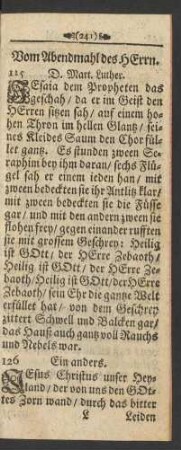 (241)
Vom Abendmahl des HErrn.
125 D. Mart. Luther.
JEsaia dem Propheten das
geschah / da er im Geist den
HErren sitzen sah / auf einem ho-
hen Thron im hellen Glantz / sei-
nes Kleides Saum den Chor fül-
let gantz. Es stunden zween Se-
raphim bey ihm daran / sechs Flü-
gel sah er einem ieden han / mit
zween bedeckten sie ihr Antlitz klar /
mit zween bedeckten sie die Füsse
gar / und mit den andern zween sie
flohen frey / gegen einander rufften
sie mit grossem Geschrey: Heilig
ist GOtt / der HErre Zebaoth /
Heilig ist GOtt / der HErre Ze-
baoth / Heilig ist GOtt / der HErre
Zebaoth / sein Ehr die gantze Welt
erfüllet hat / von dem Geschrey
zittert Schwell und Balcken gar /
das Hauß auch gantz voll Rauchs
und Nebels war.
126 Ein anders.
JEsus Christus unser Hey-
land / der von uns den GOt-
tes Zorn wand / durch das bitter
L Leiden